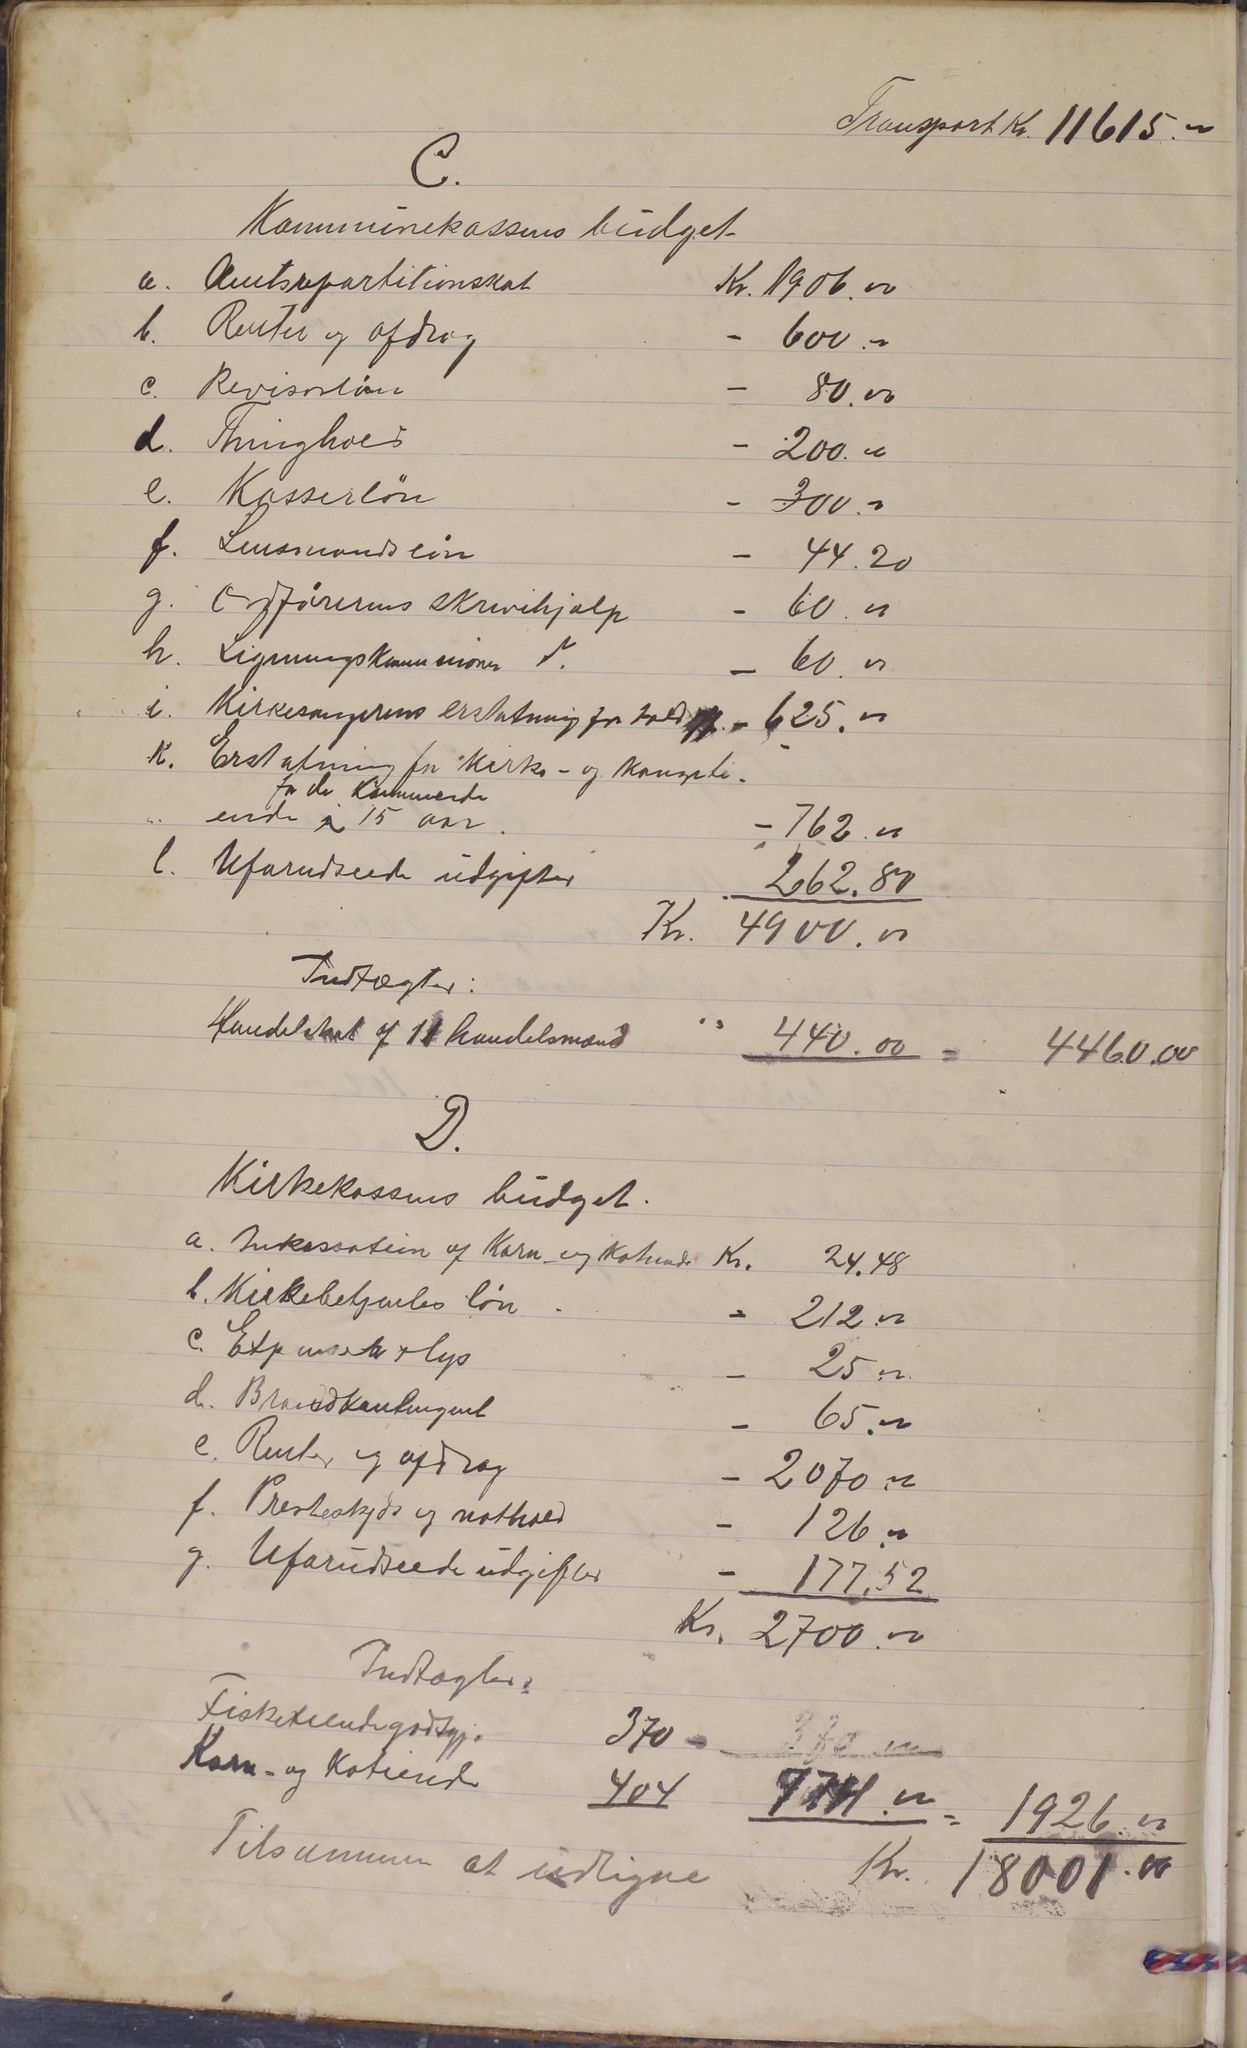 Transport Kr. 11615.00
C.
Kommunekassens budget
a. Amtsrepartitionskat Kr. 1906.00
b. Renter og afdrag - 600.00
c. Revisorløn - 80.00
d. Thinghold - 200.00
e. Kasserløn - 300.00
f. Lensmandsløn - 44.20
g. Ordførerens skrivehjælp - 60.00
h. Ligningskommisionens d. - 60.00
i. Kirkesangerens erstatning for - 625.00
k. Erstatning for Kirke- og Kongeti-
for de Kommende
ende i 15 aar. - 762.00
l. Uforudseede udgifter 262.80
Kr. 4900.00
Indtægter:
Handelskat af 11 handelsmænd " 440.00 = 4460.00
D.
Kirkekassens budget.
a. Inkassation af Korn- og Kotiende Kr. 24.48
b. Kirkebetjentes løn - 212.00
c. lys - 25.00
d. Brandkontingent - 65.00
e. Renter og afdrag - 2070.00
f. Presteskyds og nathold - 126.00
g. Uforudseede udgifter - 177.52
Kr. 2700.00
Indtægter:
Fisketiendegodtgj. 370 - 370.00
Korn- og Kotiende 404 774.00 = 1926.00
Tilsammen at udligne Kr. 18001.00